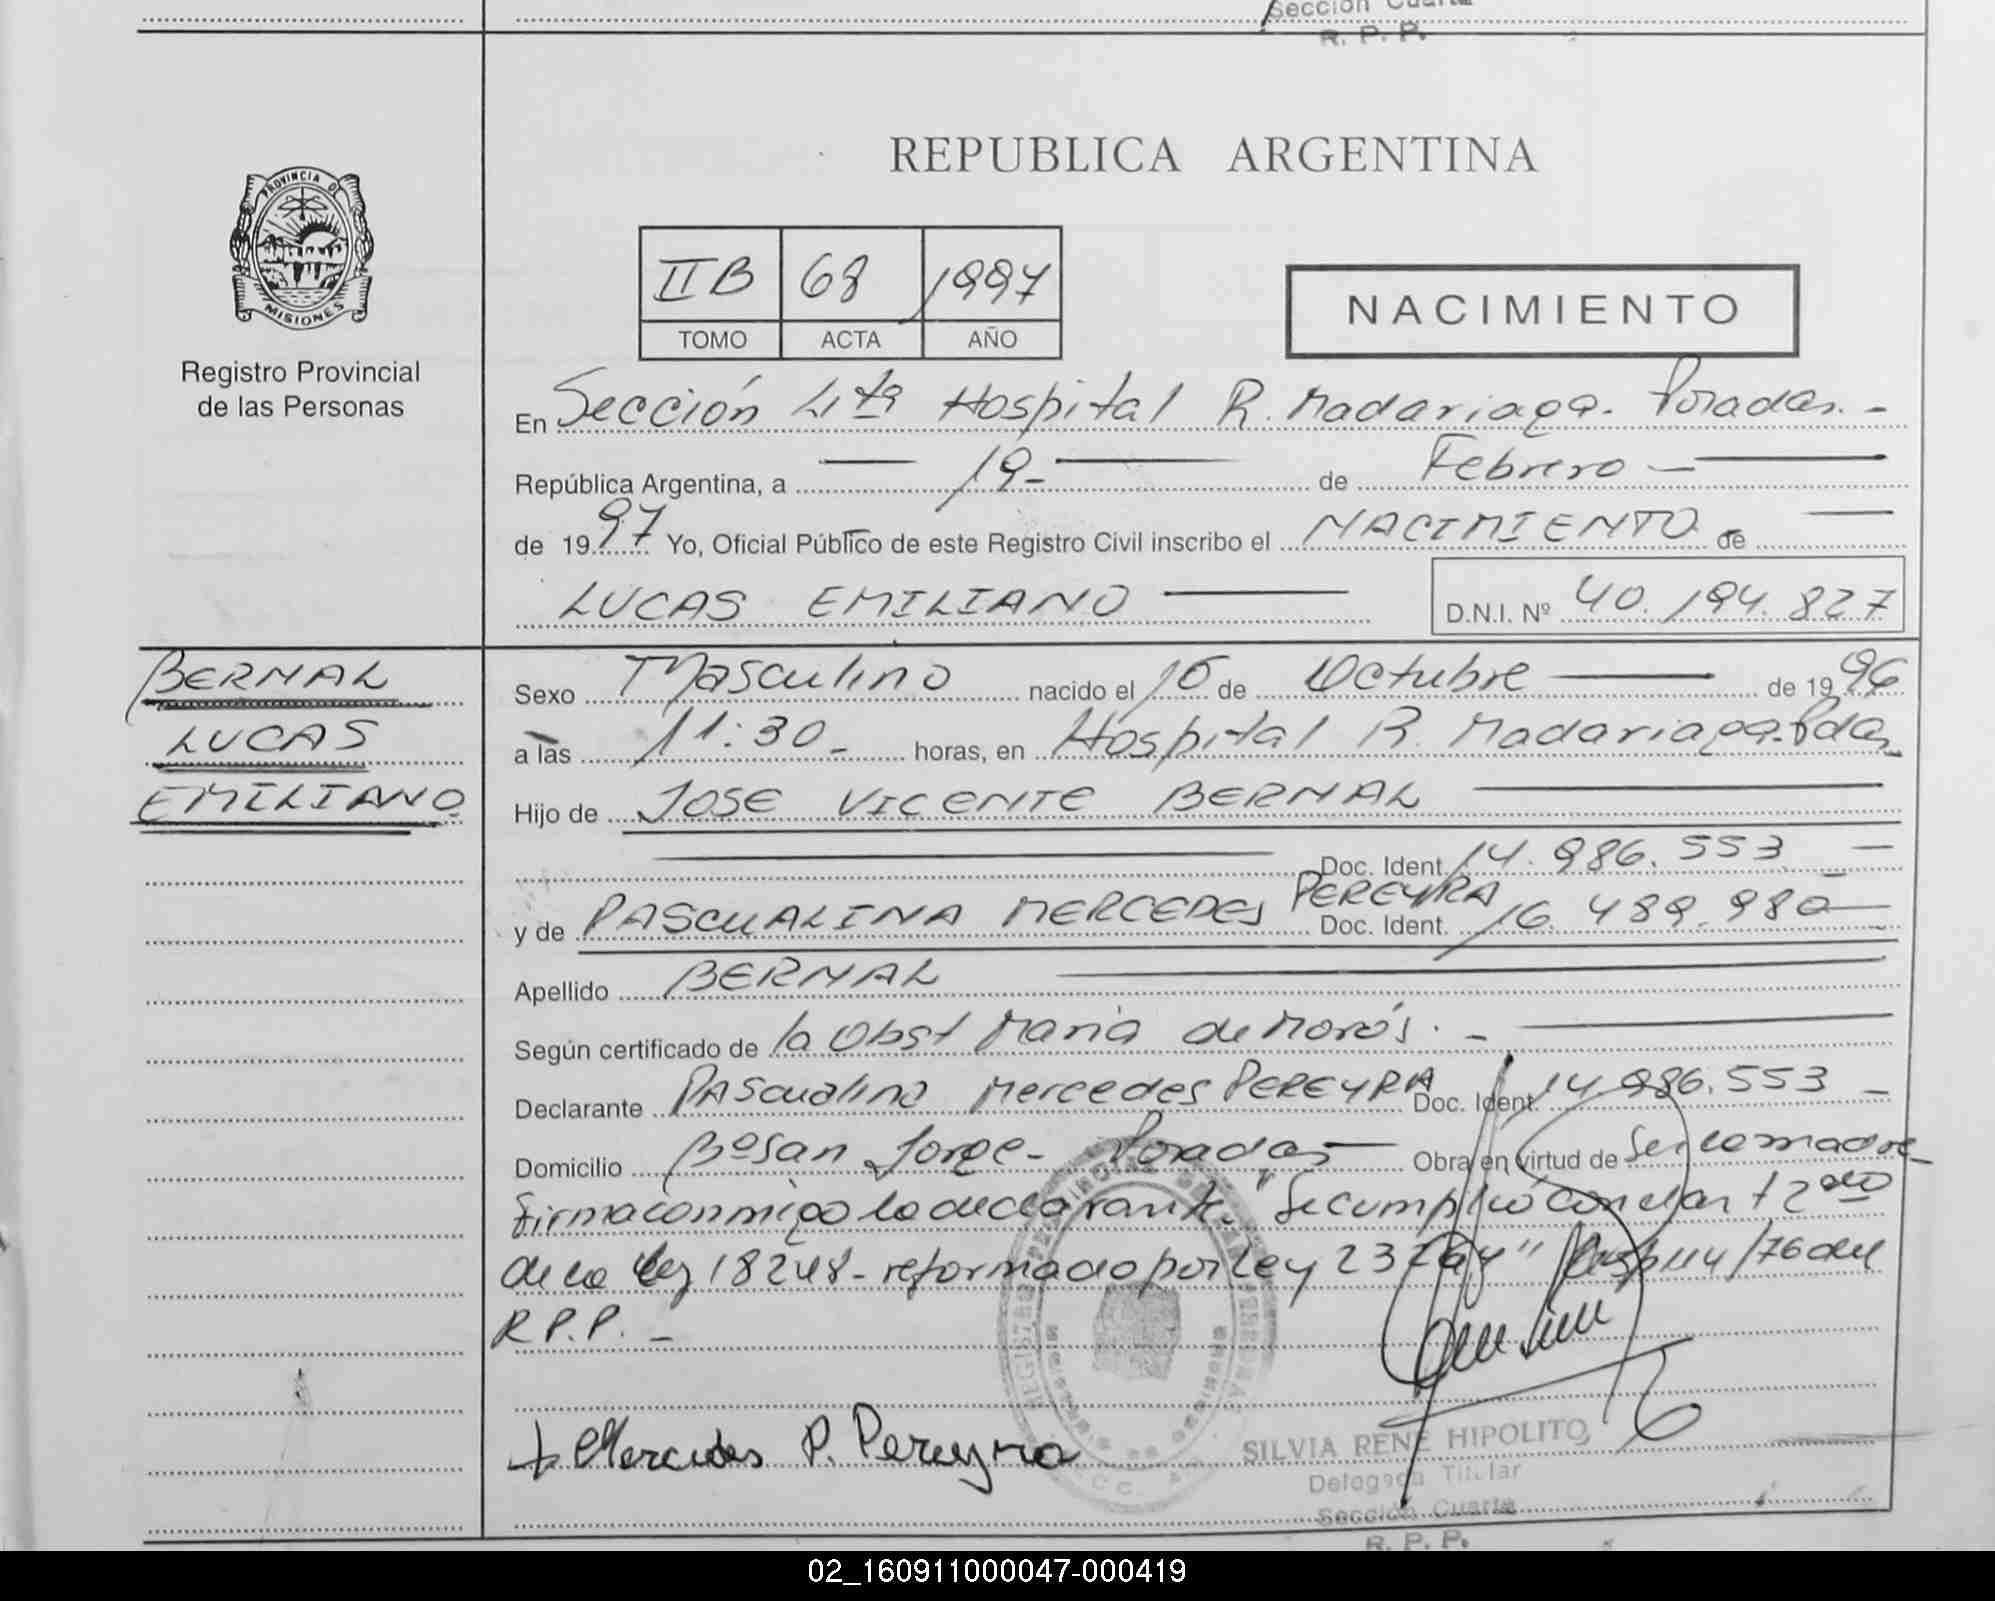 Sección Cuarta
R. P. P.
REPUBLICA ARGENTINA
PROVINCIA DE
MISIONES
Registro Provincial
de las Personas
II B 68 1997
TOMO ACTA AÑO
NACIMIENTO
En Sección 4ta Hospital R. Madariaga. Posadas. -
República Argentina, a 19- de Febrero -
de 1997 Yo, Oficial Público de este Registro Civil inscribo el NACIMIENTO de
LUCAS EMILIANO
D.N.I. Nº 40.194.827
BERNAL
LUCAS
EMILIANO
Sexo Masculino nacido el 16 de Octubre de 1996
a las 11:30- horas, en Hospital R. Madariaga. Pdas
Hijo de JOSE VICENTE BERNAL
Doc. Ident. 14.986.553 -
y de PASCUALINA MERCEDES PEREYRA Doc. Ident. 16.489.980
Apellido BERNAL
Según certificado de la Obst Maria de Morós. -
Declarante PAScualina Mercedes PEREYRA Doc. Ident. 14.986.553 -
Domicilio Bº San Jorge- Posadas Obra en virtud de Ser la madre-
firma conmigo la declarante. "Se cumplió con el art 2do
de la Ley 18248- reformado por Ley 23264" 44/76 del
R.P.P. -
Mercedes P. Pereyra
SILVIA RENE HIPOLITO
Delegada Titular
Sección Cuarta
R. P. P.
02_160911000047-000419